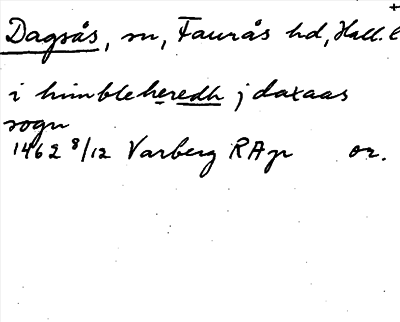 Dagsås, sn, Faurås hd, Hall. l
i himbleheredh j daxaas
sogn
1462 8/12 Varberg RAp or.